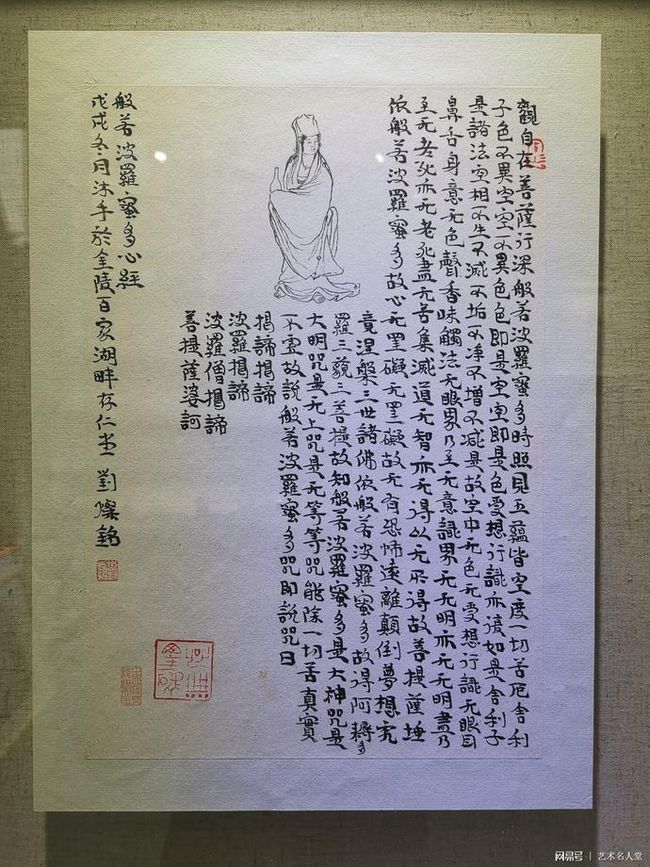 觀自在菩薩行深般若波羅蜜多時照見五蘊皆空度一切苦厄舍利
子色不異空空不異色色即是空空即是色受想行識亦復如是舍利子
是諸法空相不生不滅不垢不净不增不减是故空中无色无受想行識无眼耳
鼻舌身意无色聲香味觸法无眼界乃至无意識界无无明亦无无明盡乃
至无老死亦无老死盡无苦集滅道无智亦无得以无所得故菩提薩埵
依般若波羅蜜多故心无罣礙无罣礙故无有恐怖遠離顛倒夢想究
竟涅槃三世諸佛依般若波羅蜜多故得阿耨多
羅三藐三菩提故知般若波羅蜜多是大神咒是
大明咒是无上咒是无等等咒能除一切苦真實
不虛故說般若波羅蜜多咒即說咒曰
揭諦揭諦
波羅揭諦
波羅僧揭諦
菩提薩婆訶
般若波羅蜜多心經
戊戌冬月沐手於金陵百家湖畔怀仁堂 劉燦銘
网易号 | 艺术名人堂